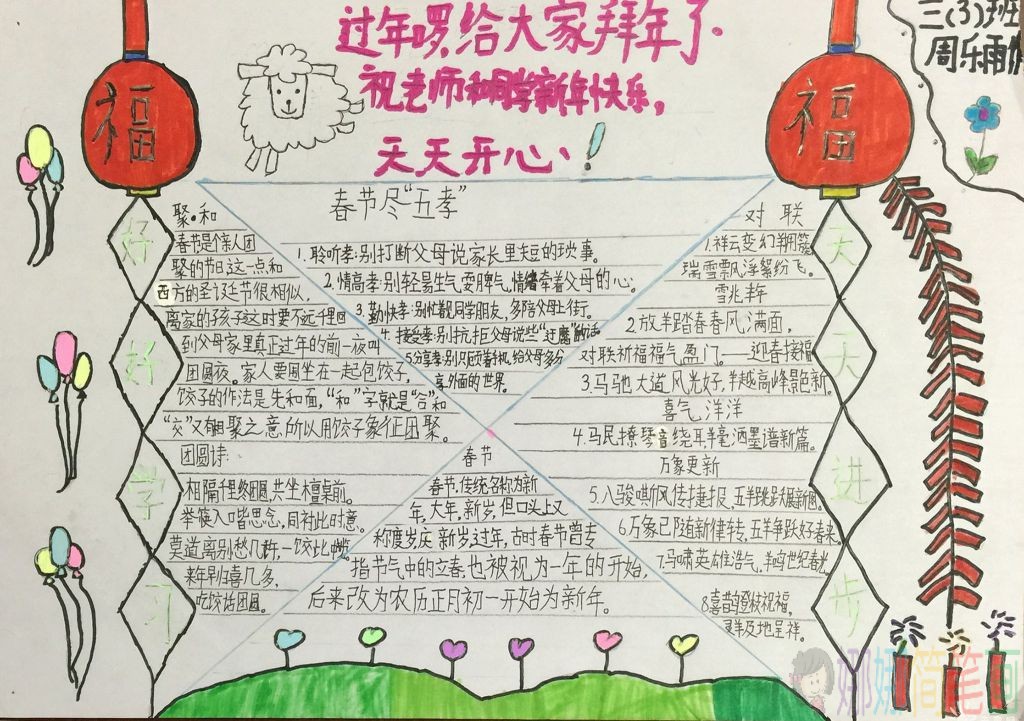 过年啰,给大家拜年了.
祝老师和同学新年快乐,
天天开心、!
三(3)班
周乐雨
福
福
好
好
学
习
天
天
进
步
春节尽“五孝”
1.聆听孝:别打断父母说家长里短的琐事。
2.情高孝:别轻易生气耍脾气,情绪牵着父母的心。
3.勤快孝:别忙着见同学朋友,多陪父母上街。
4.接受孝:别抗拒父母说些“迂腐”的话
5.分享孝:别只顾着手机,给父母多分
享外面的世界。
聚·和
春节是个亲人团
聚的节日这一点和
西方的圣诞节很相似,
离家的孩子这时要不远千里回
到父母家里真正过年的前一夜叫
团圆夜。家人要围坐在一起包饺子,
饺子的作法是先和面,“和”字就是“合”和
“交”又有相聚之意,所以用饺子象征团聚。
团圆诗:
相隔千里终团圆,共坐木檀桌前。
举筷入口皆思念,
莫道离别愁几许,一饺
来年别喜几多,
吃饺话团圆。
春节
春节,传统名称为新
年,大年,新岁,但口头上又
称度岁庆新岁,过年,古时春节曾专
指节气中的立春,也被视为一年的开始,
后来改为农历正月初一开始为新年。
对联
1.祥云变幻翔
瑞雪飘浮絮纷飞。
雪兆丰年
2.放羊踏春春风满面,
对联祈福福气盈门——迎春接福
3.马驰大道风光好,羊越高峰景色新
喜气洋洋
4.马民撩琴音绕耳羊毫洒墨谱新篇。
万象更新
5.八骏嘶风传捷报,五羊跳跃展新图
6.万象已随新律转,五羊争跃好春来
7.马啸英雄浩气,羊鸣世纪春光
8.喜鹊登枝祝福,
灵羊及地呈祥。
娜娜简笔画